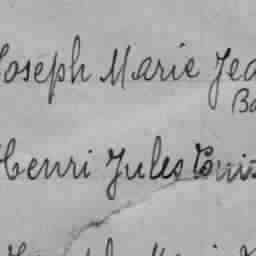 Joseph Marie Jea
Ba
Henri Jules Louis